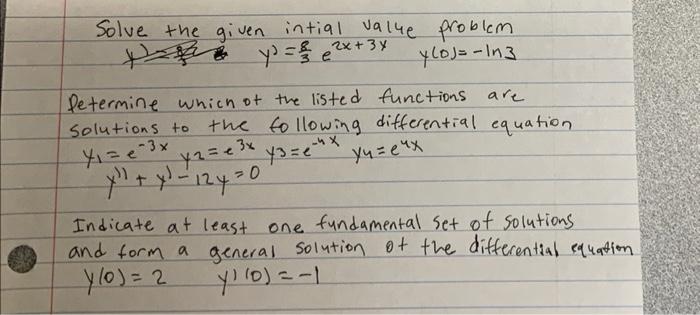 Solve the given intial value problem
y' = 8/3 e^(2x+3y) y(0) = -ln3
Determine which of the listed functions are
solutions to the following differential equation
y1 = e^(-3x) y2 = e^(3x) y3 = e^(-4x) y4 = e^(4x)
y'' + y' - 12y = 0
Indicate at least one fundamental set of solutions
and form a general solution of the differential equation
y(0) = 2 y'(0) = -1